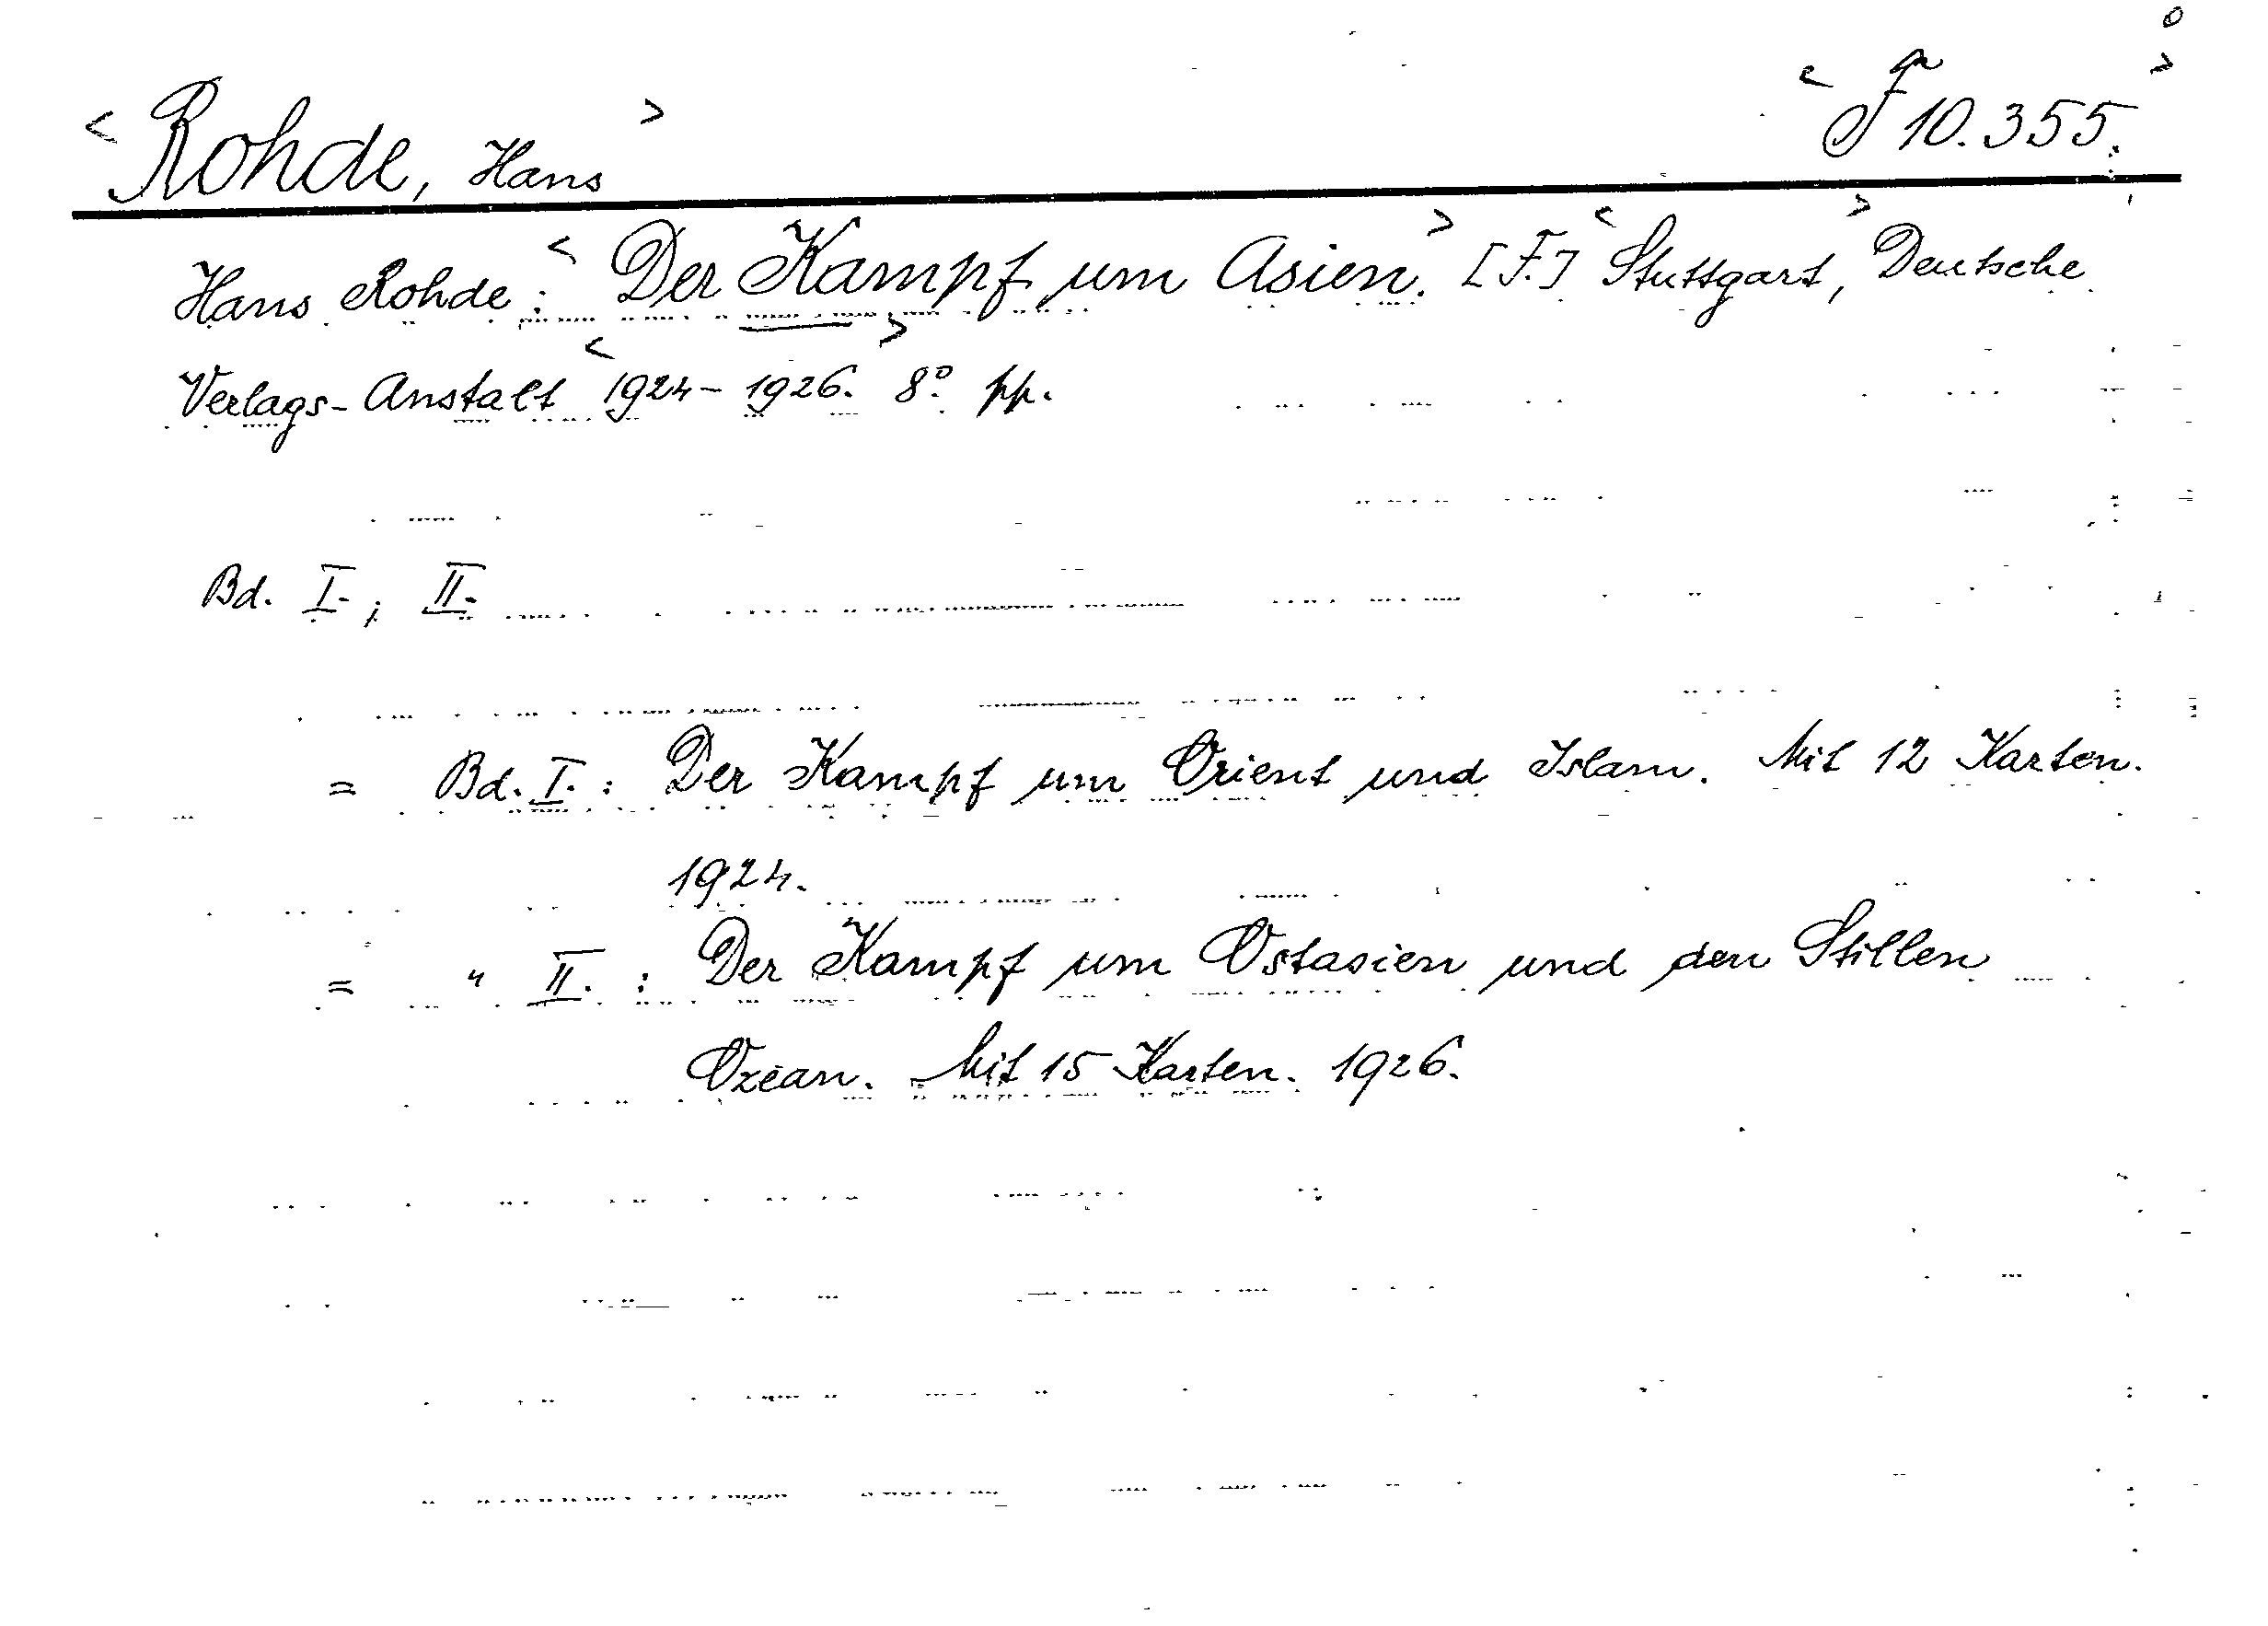 < Rohde, Hans > < F 10.355. >
Hans Rohde: < Der Kampf um Asien. > [F.] < Stuttgart, > Deutsche
Verlags-Anstalt < 1924-1926. > 8° pp.
Bd. I.; II.
= Bd. I.: Der Kampf um Orient und Islam. Mit 12 Karten.
1924.
= " II.: Der Kampf um Ostasien und den Stillen
Ozean. Mit 15 Karten. 1926.